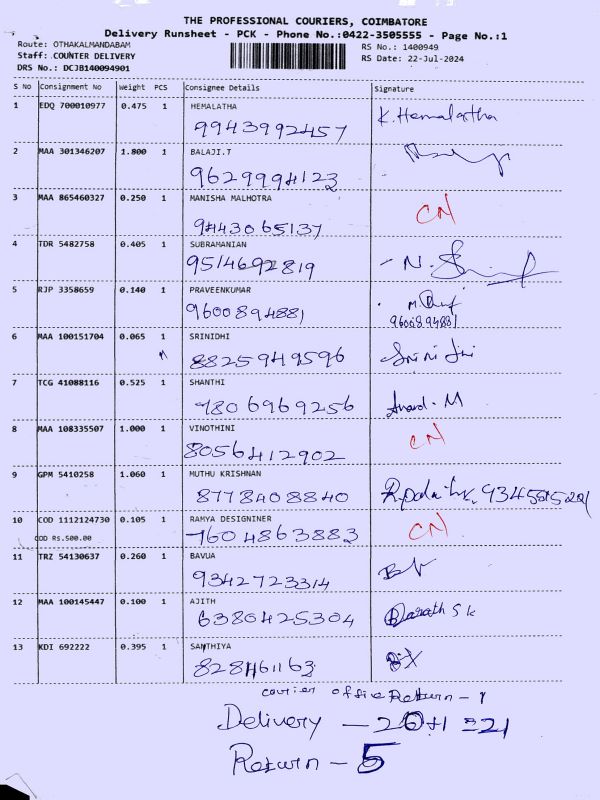 THE PROFESSIONAL COURIERS, COIMBATORE
Delivery Runsheet - PCK - Phone No.:0422-3505555 - Page No.:1
Route: OTHAKALMANDABAM
RS No.: 1400949
Staff: COUNTER DELIVERY
RS Date: 22-Jul-2024
DRS No.: DCJB140094901
S No Consignment No Weight PCS Consignee Details Signature
1 EDQ 700010977 0.475 1 HEMALATHA
9943992457 K.Hemalatha
2 MAA 301346207 1.800 1 BALAJI.T
9629994123
3 MAA 865460327 0.250 1 MANISHA MALHOTRA
9443065137 CN
4 TDR 5482758 0.405 1 SUBRAMANIAN
9514692819 - N.
5 RJP 3358659 0.140 1 PRAVEENKUMAR
9600894881
9600894881
6 MAA 100151704 0.065 1 SRINIDHI
8825949596
7 TCG 41088116 0.525 1 SHANTHI
7806969256 Anand. M
8 MAA 108335507 1.000 1 VINOTHINI
8056412902 CN
9 GPM 5410258 1.060 1 MUTHU KRISHNAN
8778408840
10 COD 1112124730 0.105 1 RAMYA DESIGNINER
COD RS.500.00 7604863883 CN
11 TRZ 54130637 0.260 1 BAVUA
9342723314
12 MAA 100145447 0.100 1 AJITH
6380425304 Barath S k
13 KDI 692222 0.395 1 SANTHIYA
office Return - 1
Delivery - 20+1 = 21
Return - 5